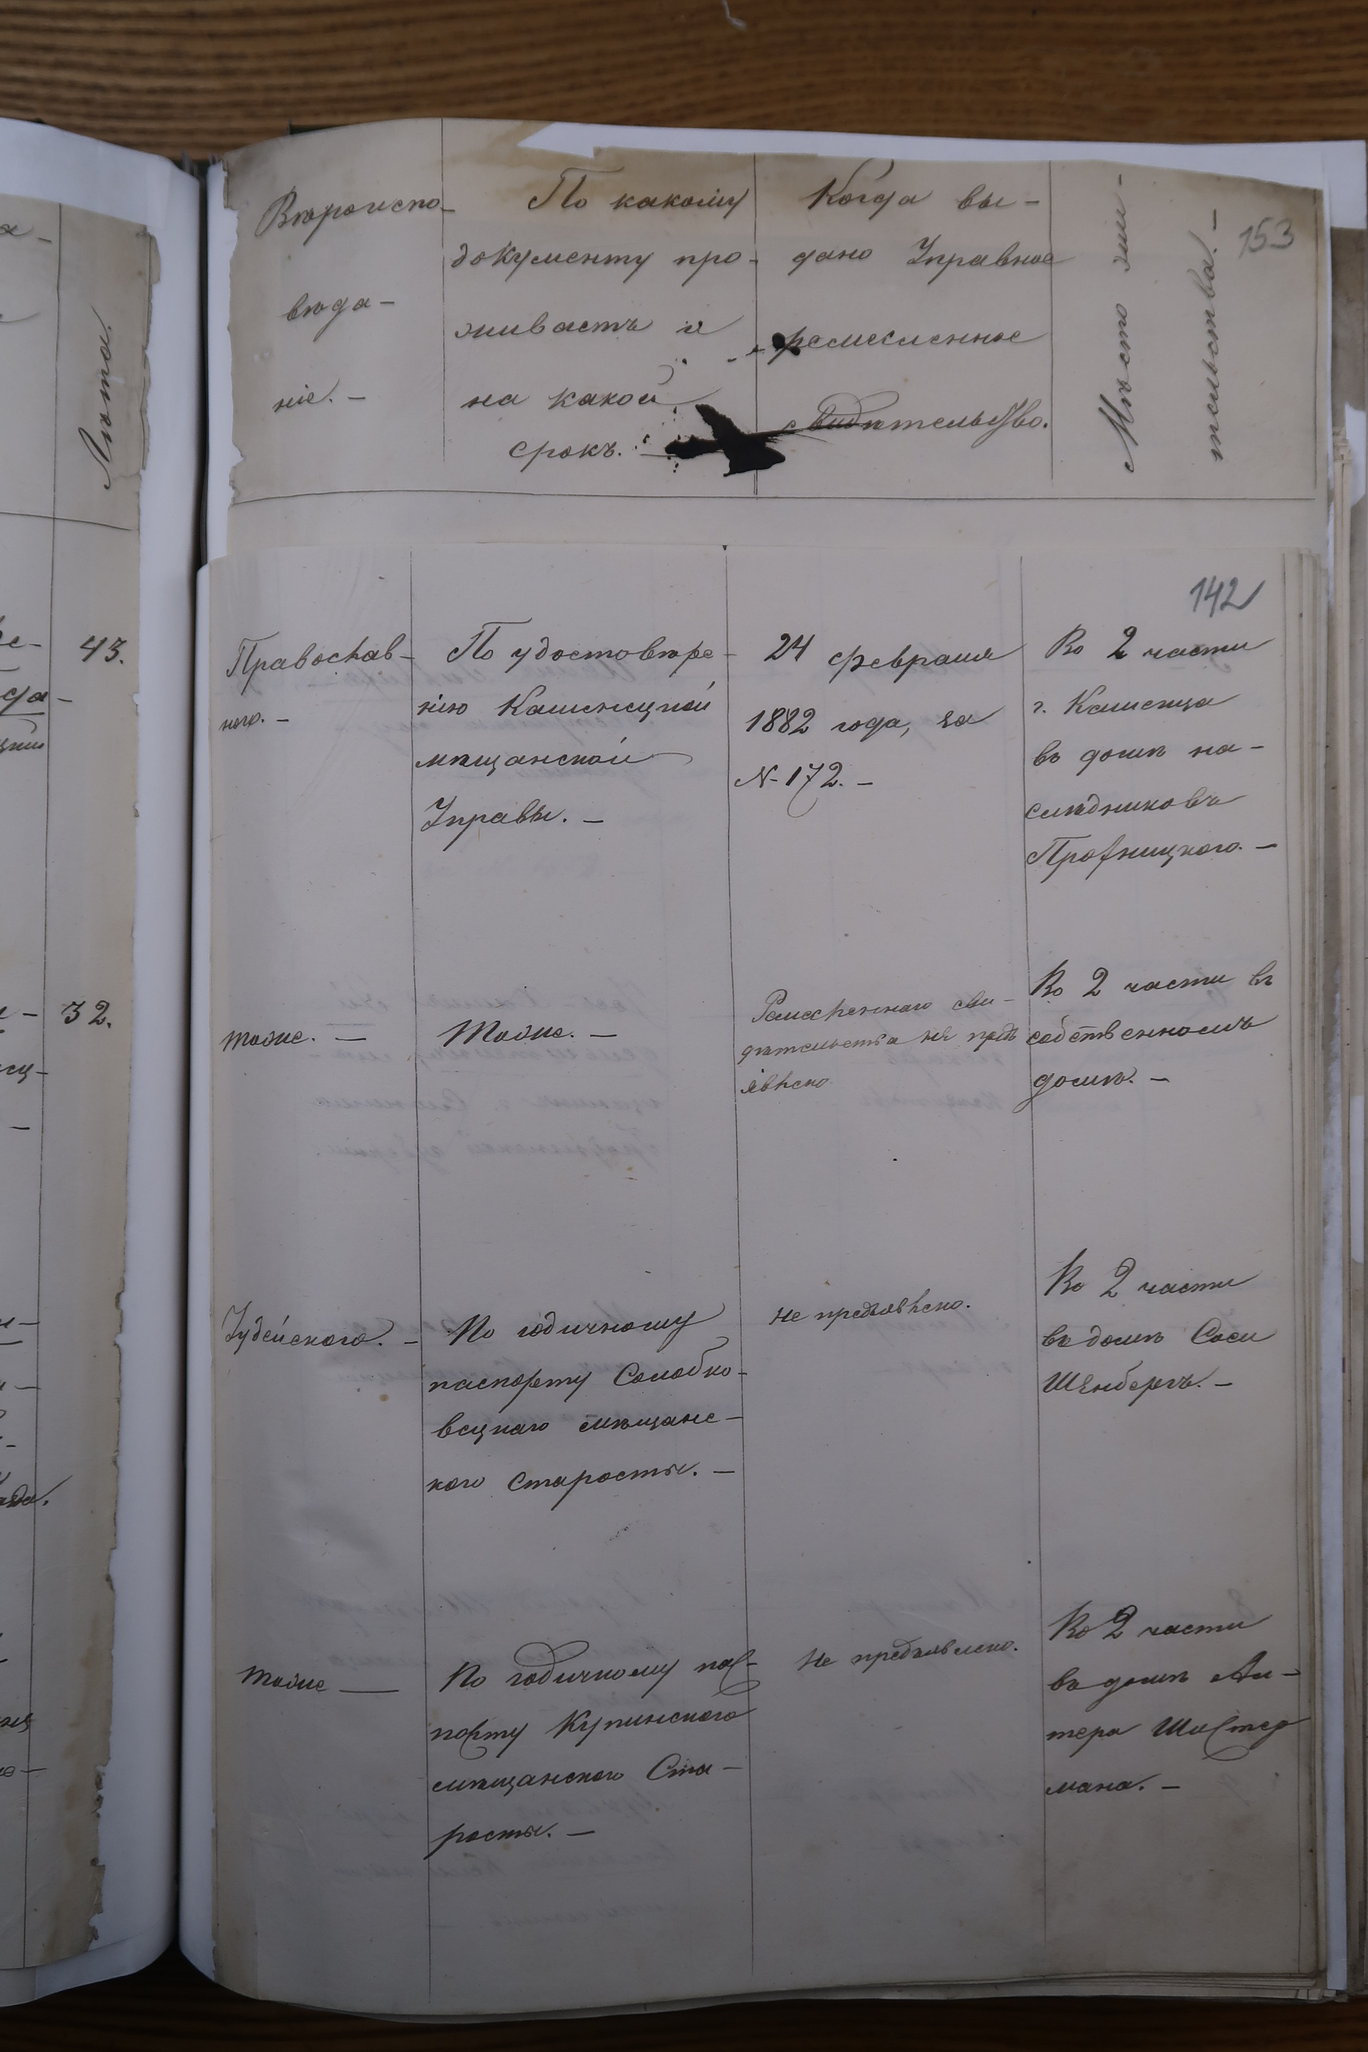 Лѣта.
43.
32.
153
Вѣроиспо-
вѣда-
ніе. -
По какому
документу про-
живаетъ и
на какой
срокъ. -
Когда вы-
дано Управною
ремесленное
свидѣтельство.
Мѣсто жи-
тельства. -
142
Православ-
ного. -
По удостовѣре-
нію Каменецкой
мѣщанской
Управы. -
24 февраля
1882 года, за
№ 172. -
Во 2 части
г. Каменца
въ домѣ на-
слѣдниковъ
тоже. -
Тоже. -
Ремесленнаго сви-
дѣтельства не предъ
явлено
Во 2 части въ
собственномъ
домѣ. -
Іудейского. -
По годичному
паспорту Солобко-
вецкаго мѣщанс-
кого старосты. -
Не предъявлено.
Во 2 части
въ домѣ Соси
Шенбергъ. -
тоже -
По годичному пас-
порту Купинского
мѣщанского Ста-
росты. -
Не предъявлено.
Во 2 части
въ домѣ
мана. -